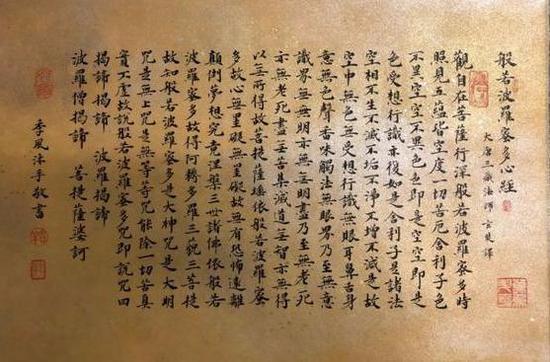 般若波羅蜜多心經
大唐三藏法師玄奘譯
觀自在菩薩行深般若波羅蜜多時
照見五蘊皆空度一切苦厄舍利子色
不異空空不異色色即是空空即是
色受想行識亦復如是舍利子是諸法
空相不生不滅不垢不淨不增不減是故
空中無色無受想行識無眼耳鼻舌身
意無色聲香味觸法無眼界乃至無意
識界無無明亦無無明盡乃至無老死
亦無老死盡無苦集滅道無智亦無得
以無所得故菩提薩埵依般若波羅蜜
多故心無罣礙無罣礙故無有恐怖遠離
顛倒夢想究竟涅槃三世諸佛依般若
波羅蜜多故得阿耨多羅三藐三菩提
故知般若波羅蜜多是大神咒是大明
咒是無上咒是無等等咒能除一切苦真
實不虛故說般若波羅蜜多咒即說咒曰
揭諦揭諦 波羅揭諦
波羅僧揭諦 菩提薩婆訶
季風沐手敬書